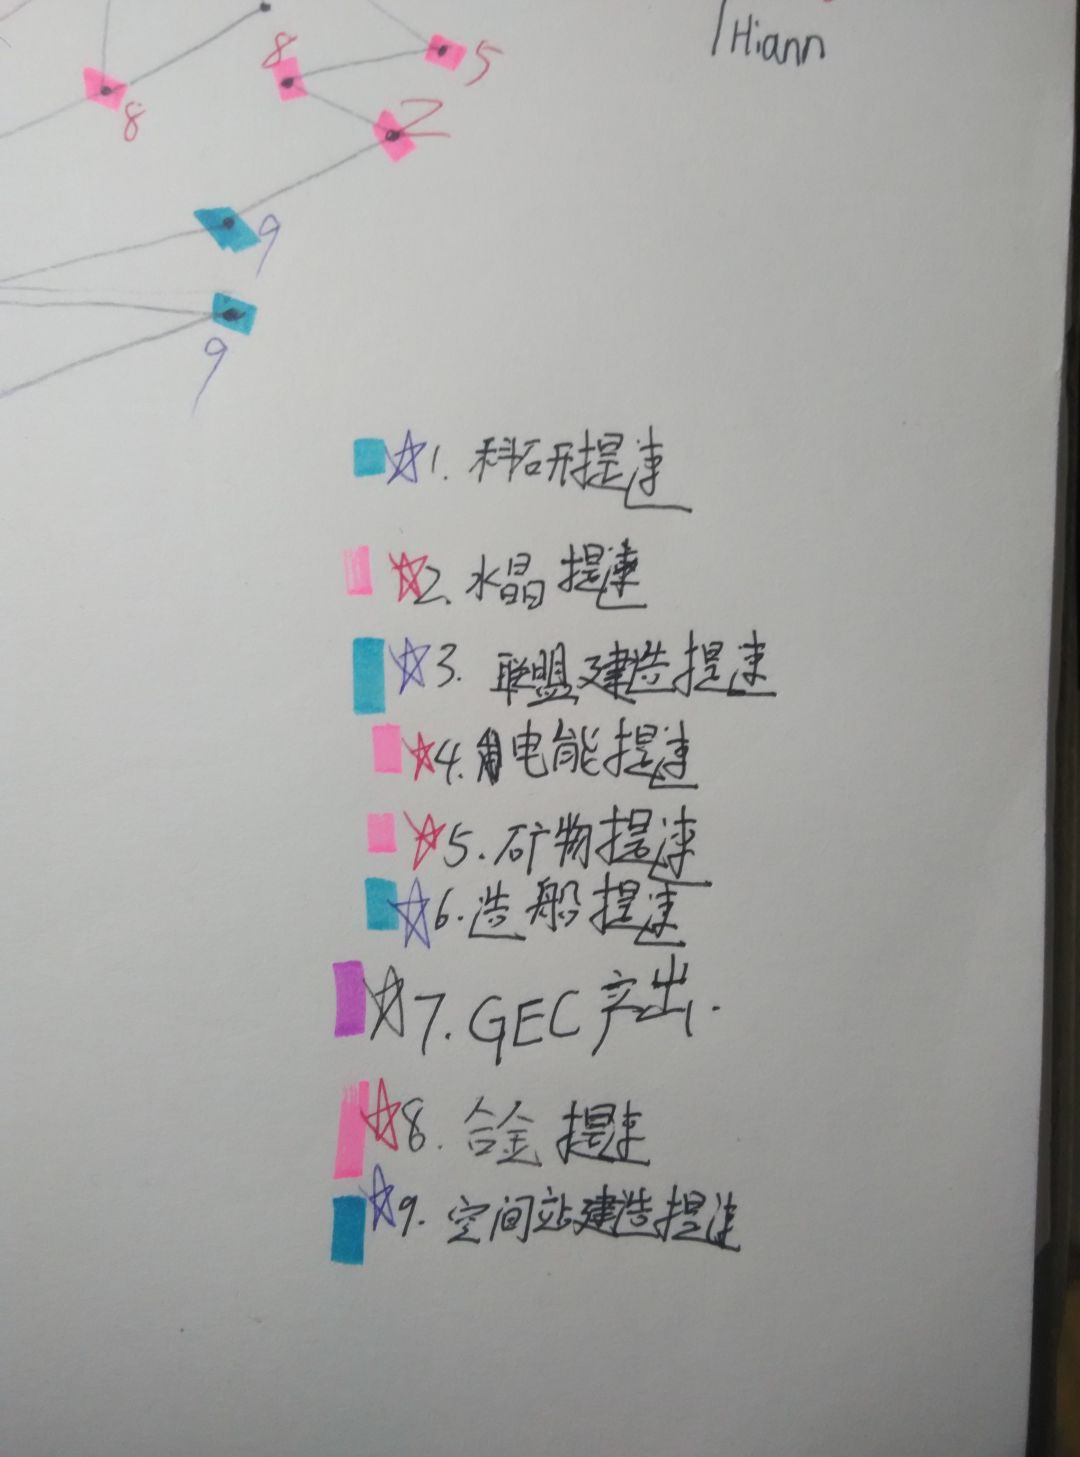 Hiann
8
5
8
2
9
9
1. 科研提速
2. 水晶提速
3. 联盟建造提速
4. 电能提速
5. 矿物提速
6. 造船提速
7. GEC产出.
8. 合金提速
9. 空间站建造提速